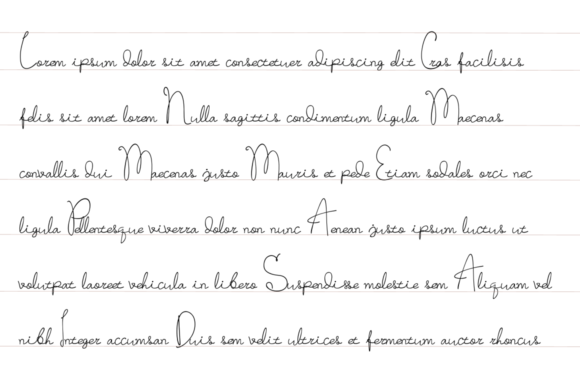 Lorem ipsum dolor sit amet consectetuer adipiscing elit Cras facilisis
felis sit amet lorem Nulla sagittis condimentum ligula Maecenas
convallis dui Maecenas justo Mauris et pede Etiam sodales orci nec
ligula Pellentesque viverra dolor non nunc Aenean justo ipsum luctus ut
volutpat laoreet vehicula in libero Suspendisse molestie sem Aliquam vel
nibh Integer accumsan Duis sem velit ultrices et fermentum auctor rhoncus